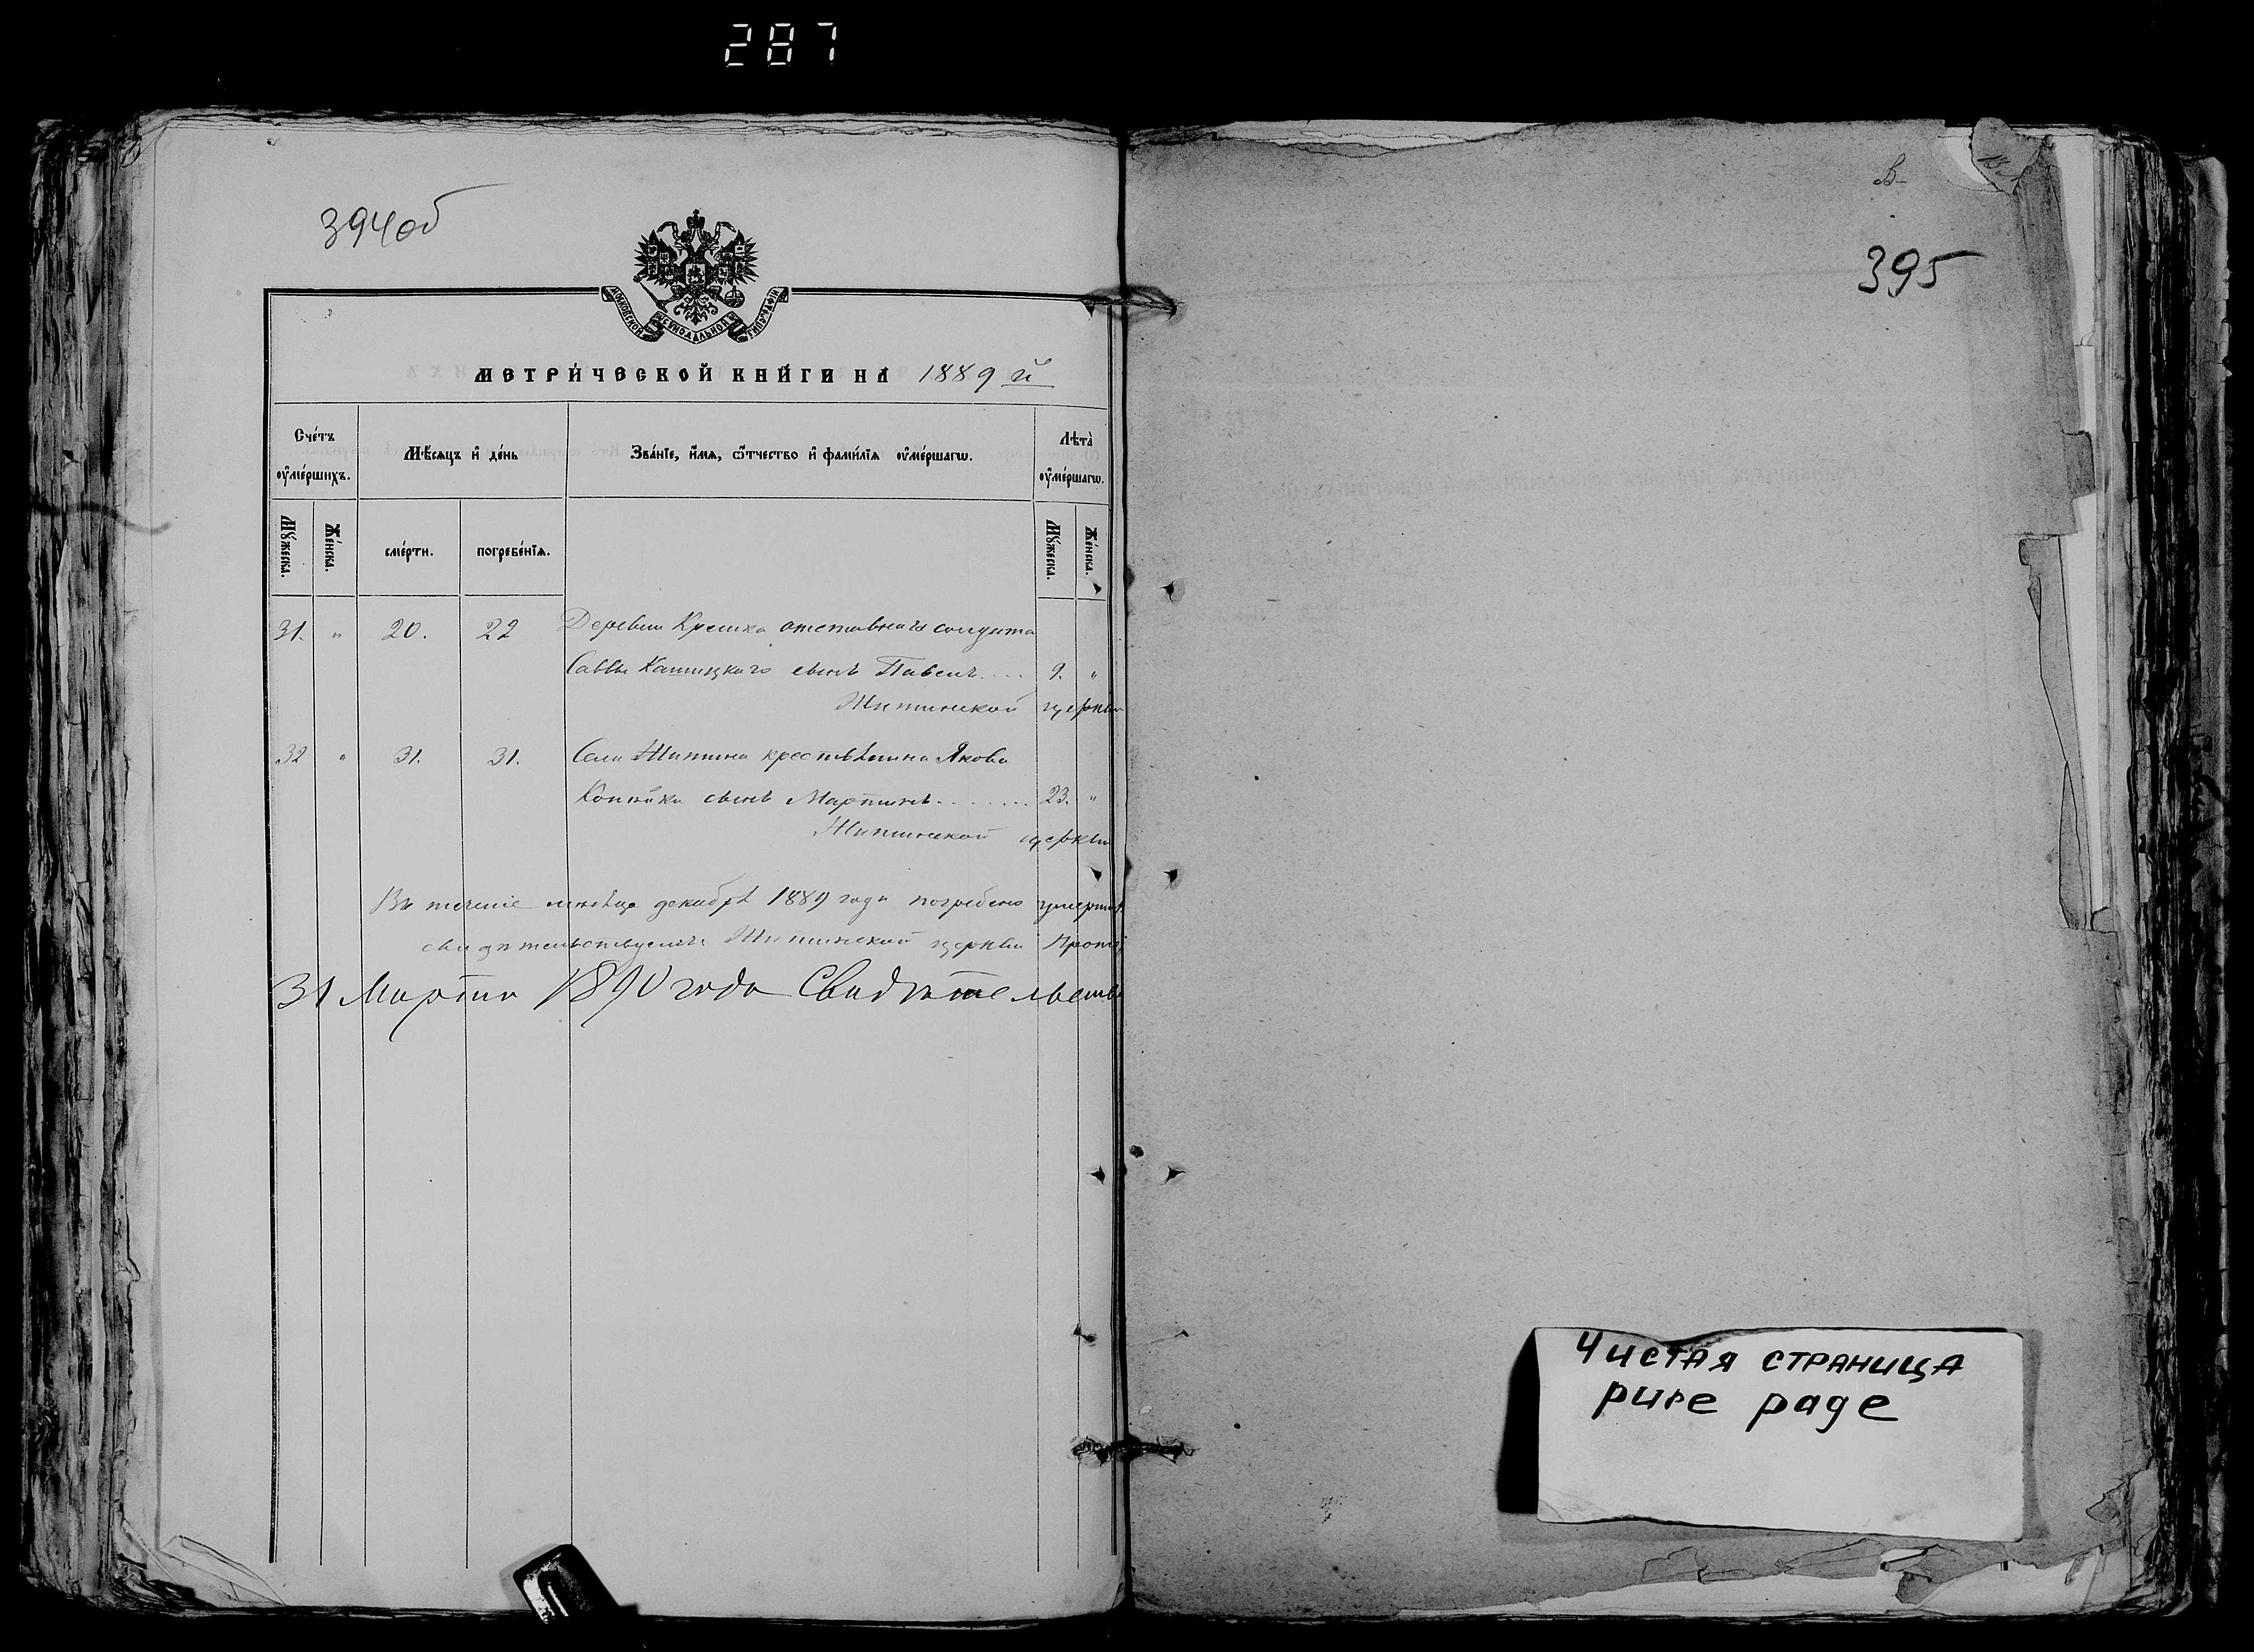 287
394об
МОСКОВСКОЙ СѴНОДАЛЬНОЙ ТИПОГРАФІИ
МЕТРИ́ЧЕСКОЙ КНИ́ГИ НА 1889 й
Сче́тъ ᲂу҆ме́ршихъ.
Мѣ́сяцъ и҆ де́нь
Зва́нїе, и҆́мѧ, ѻ҆́тчество и҆ фами́лїѧ ᲂу҆ме́ршагѡ.
Лѣта̀ ᲂу҆ме́ршагѡ.
Мꙋ́жеска.
Же́нска.
сме́рти.
погребе́нїѧ.
Мꙋ́жеска.
Же́нска.
31. " 20. 22 Деревни отставнаго солдата
Саввы сынъ Павелъ.... 9. "
Житинской церкви
32 " 31. 31. Села Житина крестьянина Якова
сынъ Мартинъ....... 23. "
Житинской церкви
Въ теченіе мѣсяца декабря 1889 года погребено
свидѣтельствуемъ Житинской церкви
31 Марта 1890 года
В
395
Чистая страница
pure page